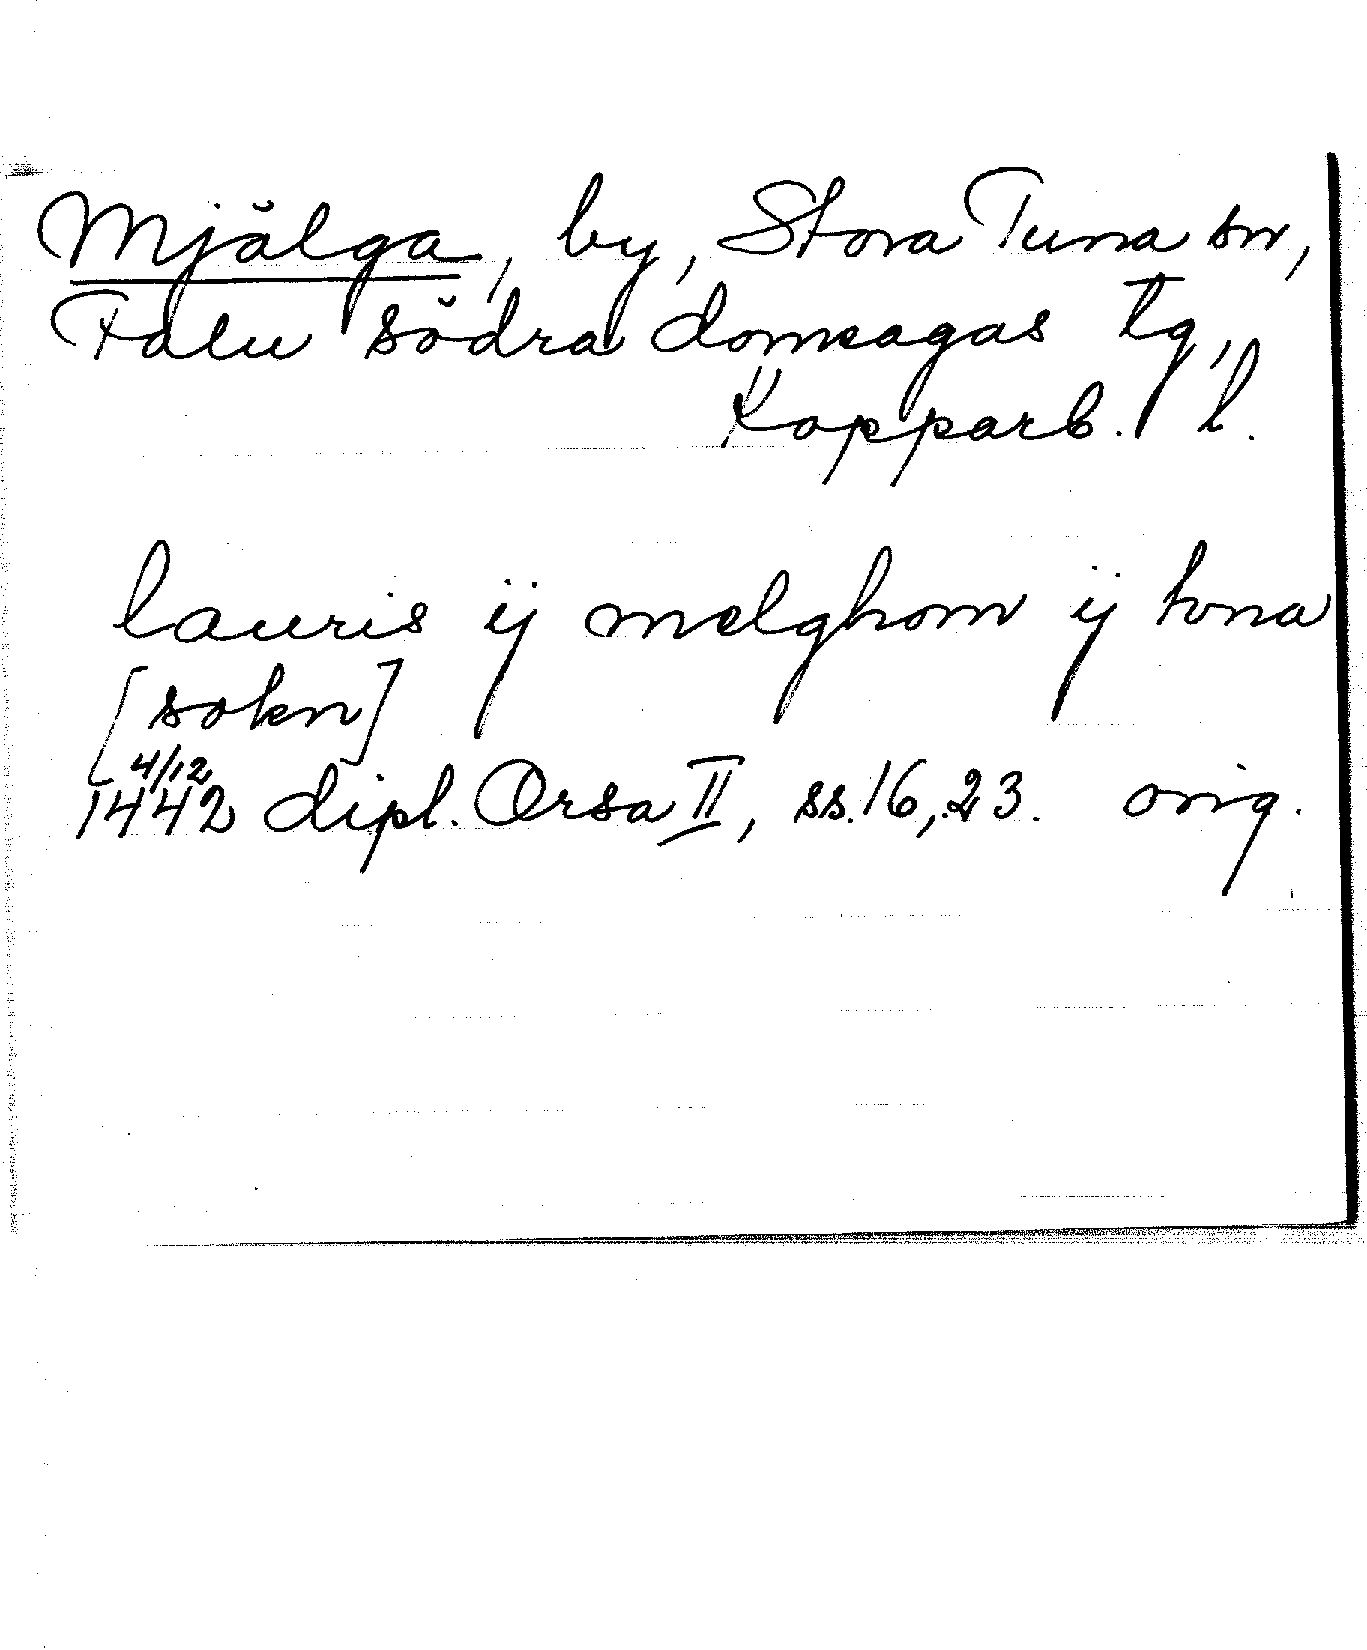 Mjälga, by, Stora Tuna sn,
Falu södra domsagas tg,
Kopparb. l.
lauris ij melghom ij tvna
[sokn]
4/12
1442 dipl. Orsa II, ss. 16, 23. orig.